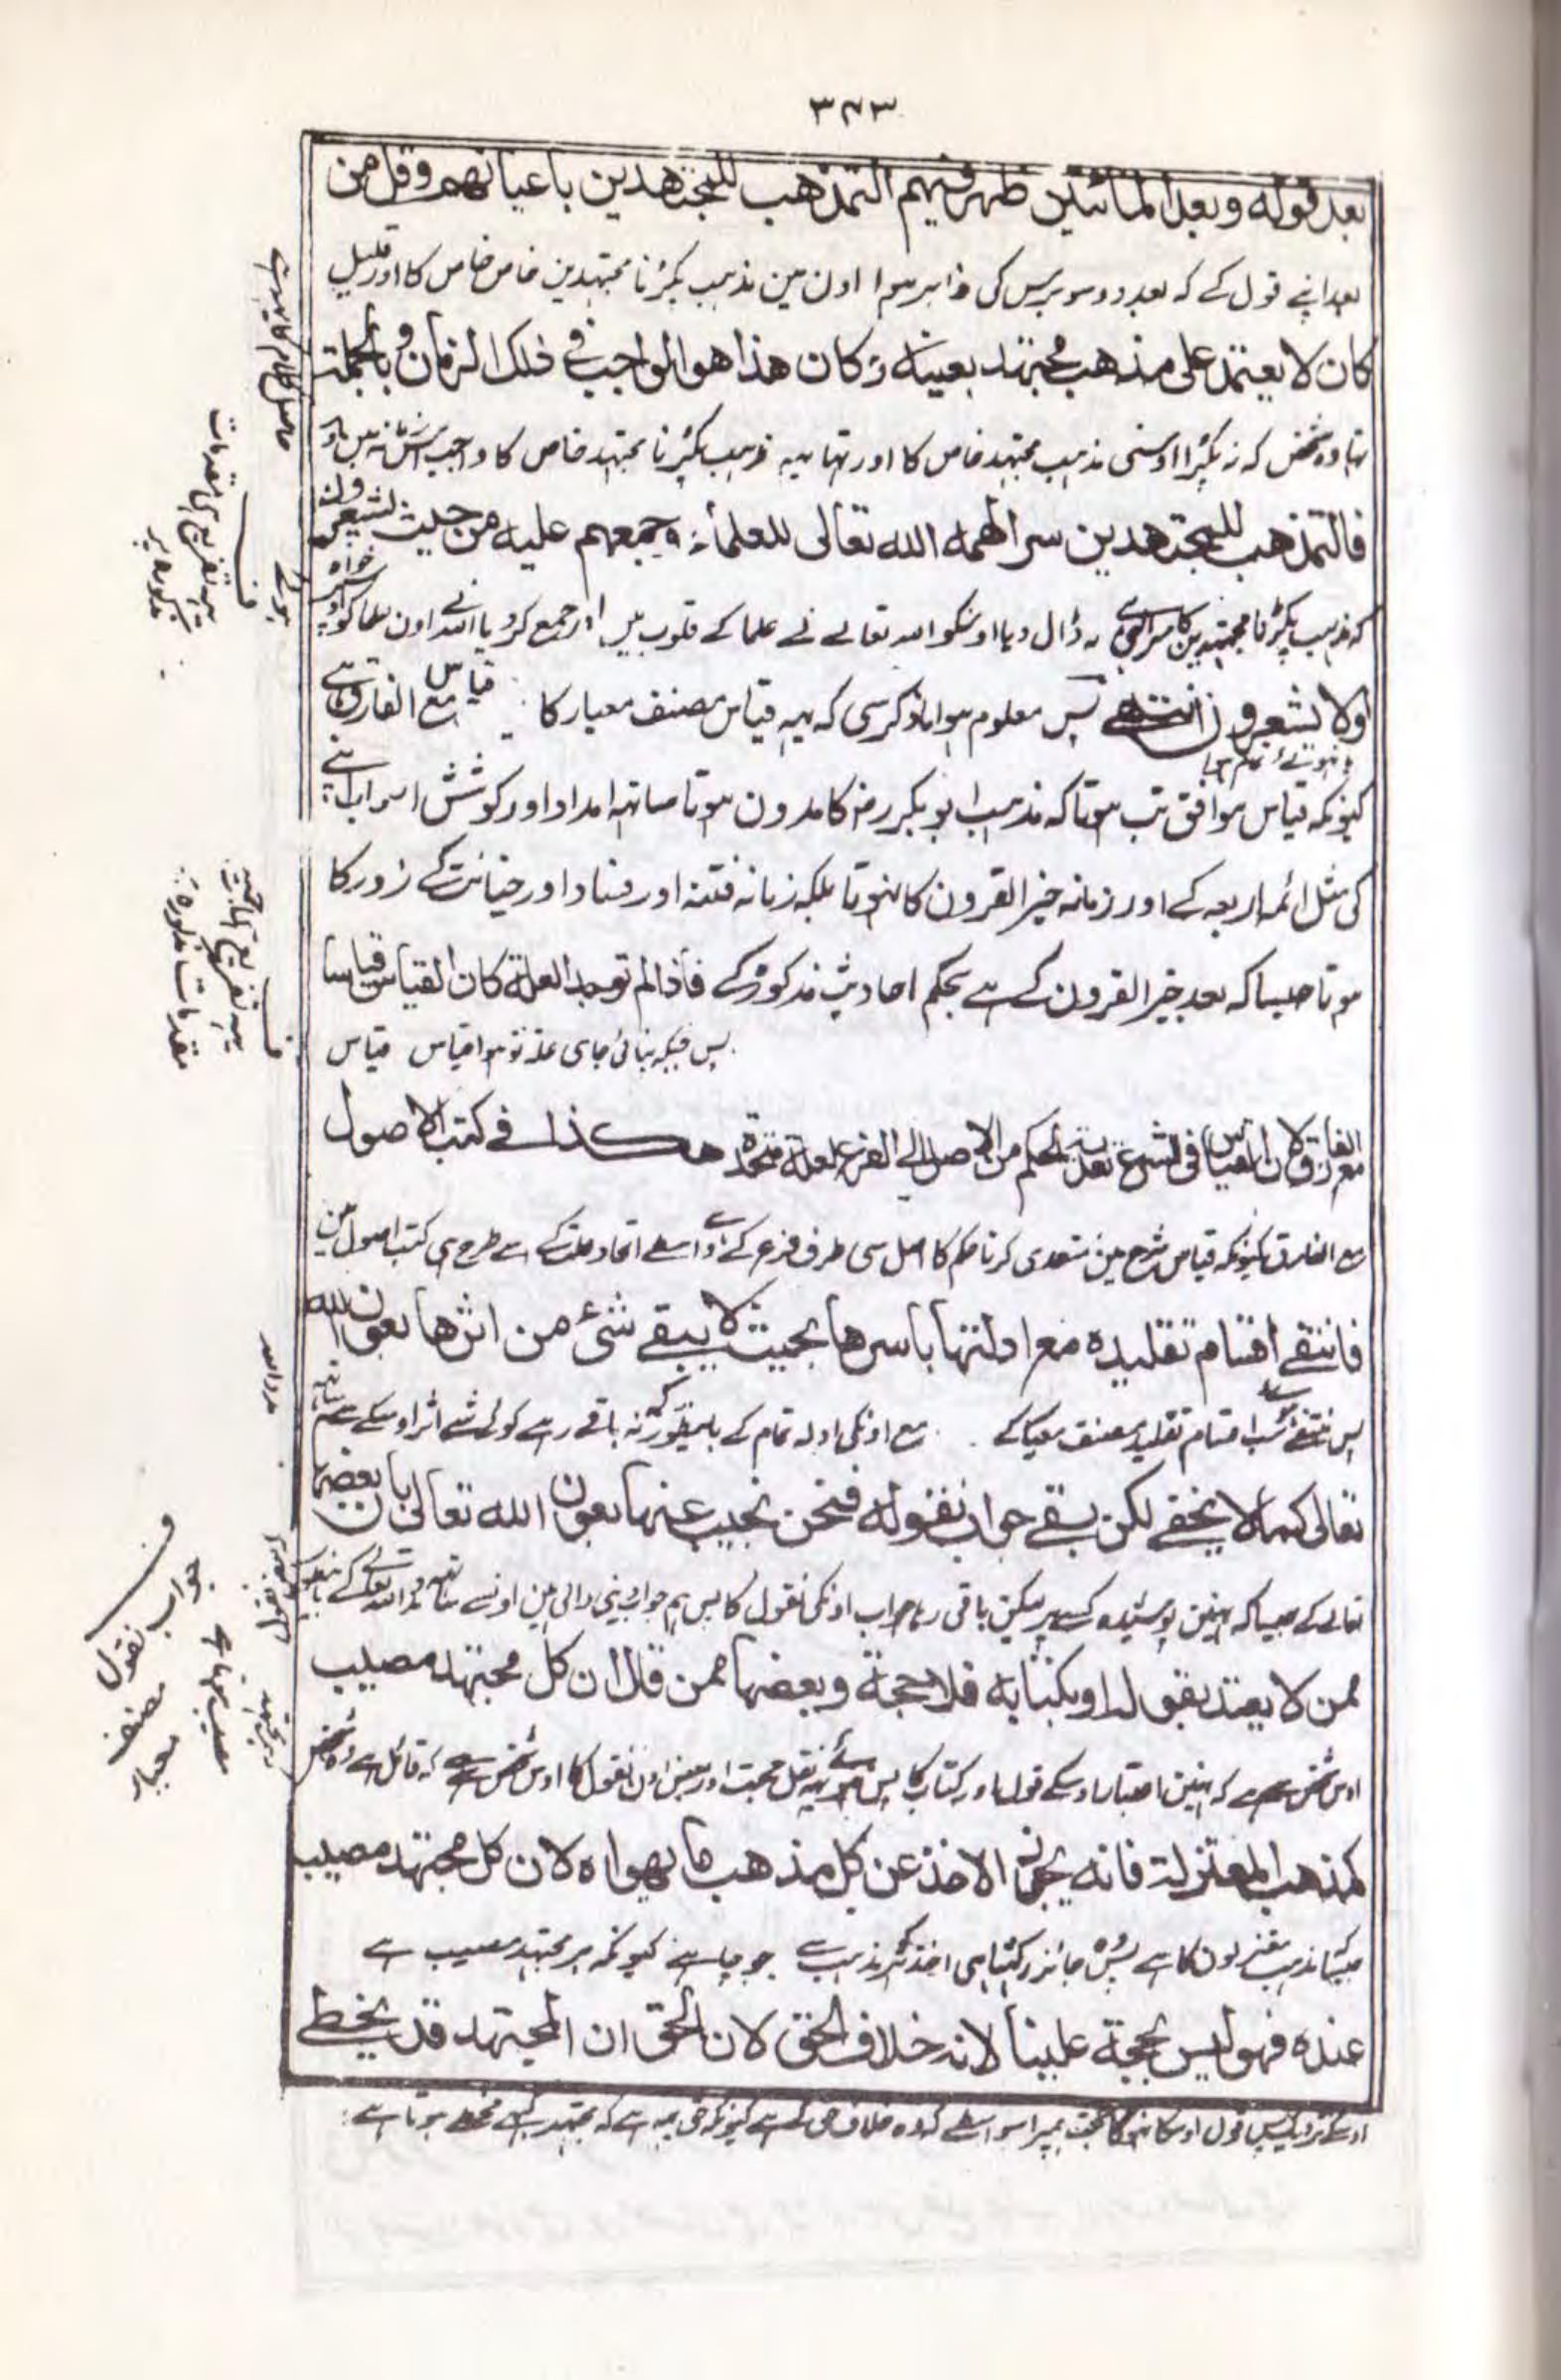 ٣٧٣
بعد قوله وبعد المائتين ظهر فيهم التمذهب للمجتهدين باعيانهم وقل من
بعد اپنے قول کے کہ بعد دو سو برس کی ظاہر ہوا اون مین مذہب پکڑنا مجتہدین خاص خاص کا اور قلیل
كان لا يعتمد على مذهب مجتهد بعينه وكان هذا هو الواجب في ذلك الزمان وبالجملة
تہا وہ شخص کہ نہ پکڑا اوسنی مذہب مجتہد خاص کا اور تہا یہہ مذہب پکڑنا مجتہد خاص کا واجب
فالتمذهب للمجتهدين سر الهمه الله تعالى للعلماء وجمعهم عليه من حيث يشعرون
کہ مذہب پکڑنا مجتہدین کا ڈال دیا اوسکو اللہ تعالے نے علما کے قلوب میں اور جمع کر دیا اون علما کو
اولا يشعرون انتهى پس معلوم ہوا ماذکر سی کہ یہہ قیاس مصنف معیار کا قیاس مع الفارق ہے
کیونکہ قیاس موافق تب ہوتا کہ مذہب ابو بکر رض کا مدون ہوتا ساتہہ امداد اور کوشش
کی مثل ائمہ اربعہ کے اور زمانہ خیر القرون کا نہوتا بلکہ زمانہ فتنہ اور فساد اور خیانت کے زور کا
ہوتا جیسا کہ بعد خیر القرون کے ہے بحکم احادیث مذکورہ کے فاذا لم توجد العلة كان القياس قياسا
پس جبکہ نپائی جاوی علۃ تو ہوا قیاس قیاس
مع الفارق لان القياس في الشرع تعدية الحكم من الاصل الى الفرع لعلة متحدة هكذا في كتب الاصول
مع الفارق کیونکہ قیاس شرع مین متعدی کرنا حکم کا اصل سی طرف فرع کے واسطے اتحاد علت کے اسے طرح ہی کتب اصول مین
فانتفى اقسام تقليده مع ادلتها باسرها بحيث لا يبقى شئ من اثرها بعون الله
پس منتفے اقسام تقلید مصنف معیار کے مع اونکی ادلہ تمام کے نہ باقے رہے کوئی شے اثر اوسکے سے
تعالى كما لا يخفى لكن بقي جواب نقوله فنحن نجيب عنها بعون الله تعالى بان بعضها
تعالے کے جیسا کہ نہین پوشیدہ لیکن باقی رہا جواب اونکی نقول کا پس ہم جواب دینی والی ہین
ممن لا يعتد بقوله او بكتابه فلا حجة وبعضها ممن قال ان كل مجتهد مصيب
اوس شخص سے ہے کہ نہین اعتبار اوسکے قول اور کتاب کا پس نہوئی یہہ نقل حجت اور بعض اون نقول کا اوس شخص سے ہے کہ قائل ہے
كمذهب المعتزلة فانه يجوز الاخذ عن كل مذهب ما يهواه لان كل مجتهد مصيب
جیسا مذہب معتزلون کا ہے جائز رکہتا ہی اخذ ہر مذہب سے جو چاہے کیونکہ ہر مجتہد مصیب ہے
عنده فهو ليس بحجة علينا لانه خلاف الحق لان الحق ان المجتهد قد يخطي
اوسکے نزدیک پس قول اوسکا حجت ہمپر اسواسطے کہ وہ خلاف حق کے ہے کیونکہ حق یہہ ہے کہ مجتہد کبہے مخطے ہوتا ہے
ف
جواب نقول
مصنف
معیار